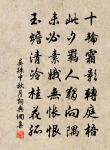 十輪霜影轉庭梧
此夕羈人獨向隅
未必素娥無悵恨
玉蟾清冷桂花孤
晏殊中秋月詩詞